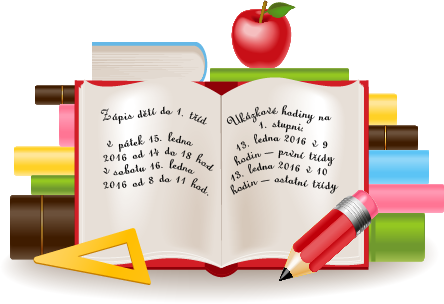 Zápis dětí do 1. tříd
v pátek 15. ledna
2016 od 14 do 18 hod
v sobotu 16. ledna
2016 od 8 do 11 hod.
Ukázkové hodiny na
1. stupni:
13. ledna 2016 v 9
hodin – první třídy
13. ledna 2016 v 10
hodin – ostatní třídy